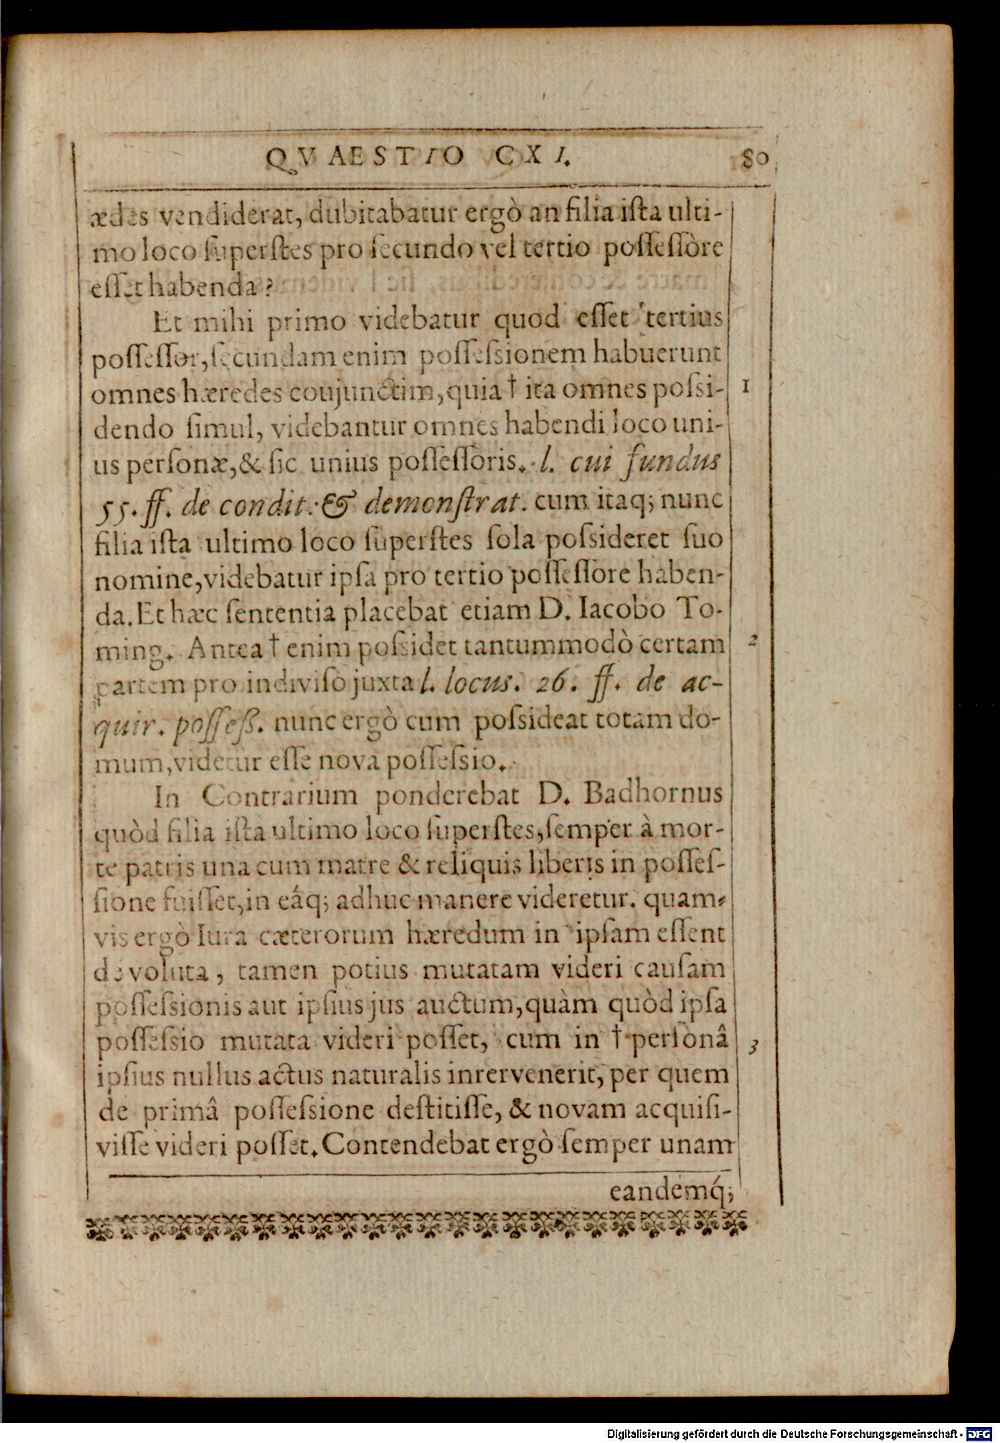 QVAESTIO CXI. 80
ædes vendiderat, dubitabatur ergò an filia ista ulti-
mo loco superstes pro secundo vel tertio possessòre
esset habenda?
Et mihi primo videbatur quod esset tertius
possessor, secundam enim possessionem habuerunt
omnes hæredes coujunctim, quia † ita omnes possi- 1
dendo simul, videbantur omnes habendi loco uni-
us personæ, & sic unius possessoris. l. cui fundus
55. ff. de condit. & demonstrat. cum itaq; nunc
filia ista ultimo loco superstes sola possideret suo
nomine, videbatur ipsa pro tertio possessore haben-
da. Et hæc sententia placebat etiam D. Iacobo To-
ming. Antea † enim possidet tantummodò certam 2
partem pro indiviso juxta l. locus. 26. ff. de ac-
quir. possess. nunc ergò cum possideat totam do-
mum, videtur esse nova possessio.
In Contrarium ponderebat D. Badhornus
quòd filia ista ultimo loco superstes, semper à mor-
te patris una cum matre & reliquis liberis in posses-
sione fuisset, in eâq; adhuc manere videretur. quam-
vis ergò Iura cæterorum hæredum in ipsam essent
devoluta, tamen potius mutatam videri causam
possessionis aut ipsius jus auctum, quàm quòd ipsa
possessio mutata videri posset, cum in † personâ 3
ipsius nullus actus naturalis inrervenerit, per quem
de primâ possessione destitisse, & novam acquisi-
visse videri posset. Contendebat ergò semper unam
eandemq́;
Digitalisierung gefördert durch die Deutsche Forschungsgemeinschaft - DFG